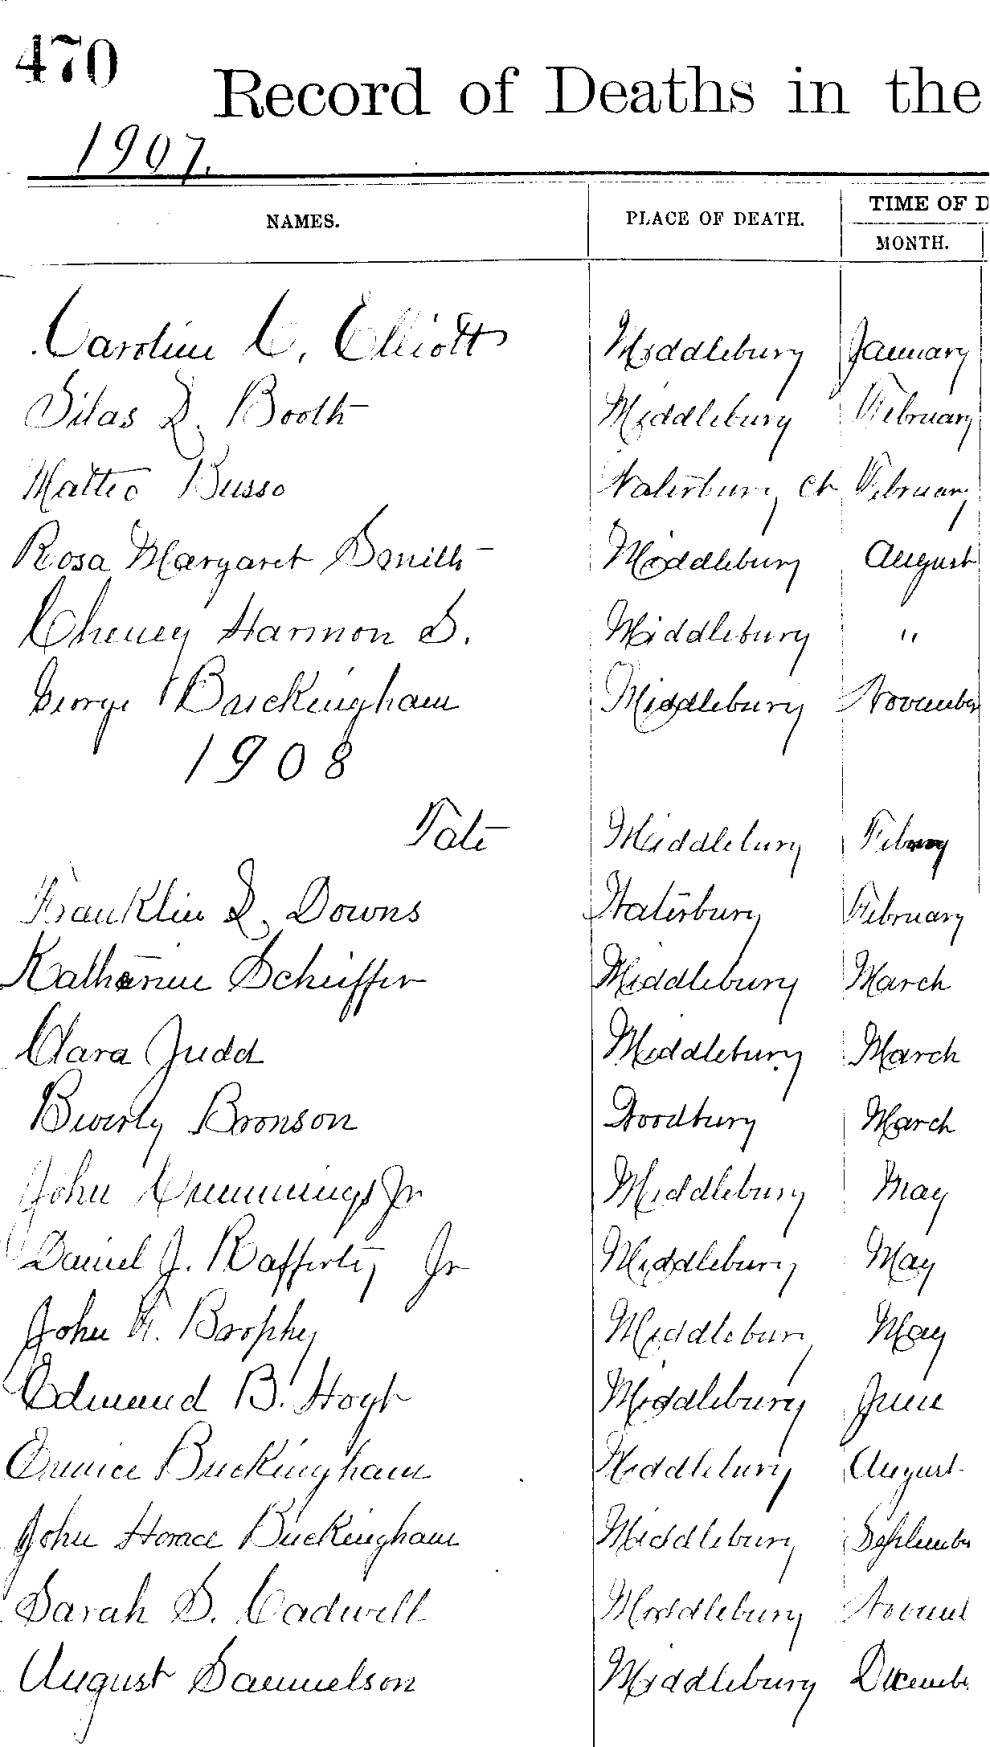 470
Record of Deaths in the
1907.
NAMES. PLACE OF DEATH. TIME OF D
MONTH.
Caroline C. Elliott Middlebury January
Silas D. Booth Middlebury February
Matteo Russo Waterbury Ct February
Rosa Margaret Smith Middlebury August
Cheney Harmon S. Middlebury "
George Buckingham Middlebury November
1908
Tate Middlebury
Franklin D. Downs Waterbury February
Katherine Scheiffer Middlebury March
Clara Judd Middlebury March
Beverly Bronson Woodbury March
John Cummings Jr Middlebury May
Daniel J. Rafferty Jr Middlebury May
John F. Brophy Middlebury May
Edmund B. Hoyt Middlebury June
Eunice Buckingham Middlebury August
John Horace Buckingham Middlebury September
Sarah S. Cadwell Middlebury November
August Samuelson Middlebury December